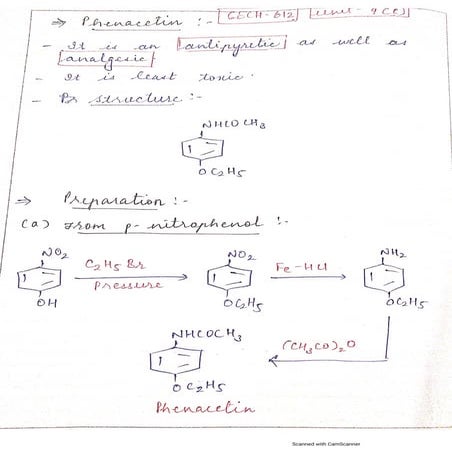 ⇒ Phenacetin :- [CECH-612] [Unit-4(c)]
- It is an antipyretic as well as
analgesic.
- It is least toxic.
- Its structure :-
NHCOCH3
OC2H5
⇒ Preparation :-
(a) From p-nitrophenol :-
NO2 C2H5Br NO2 Fe-HCl NH2
Pressure
OH OC2H5 OC2H5
NHCOCH3 (CH3CO)2O
OC2H5
Phenacetin
Scanned with CamScanner